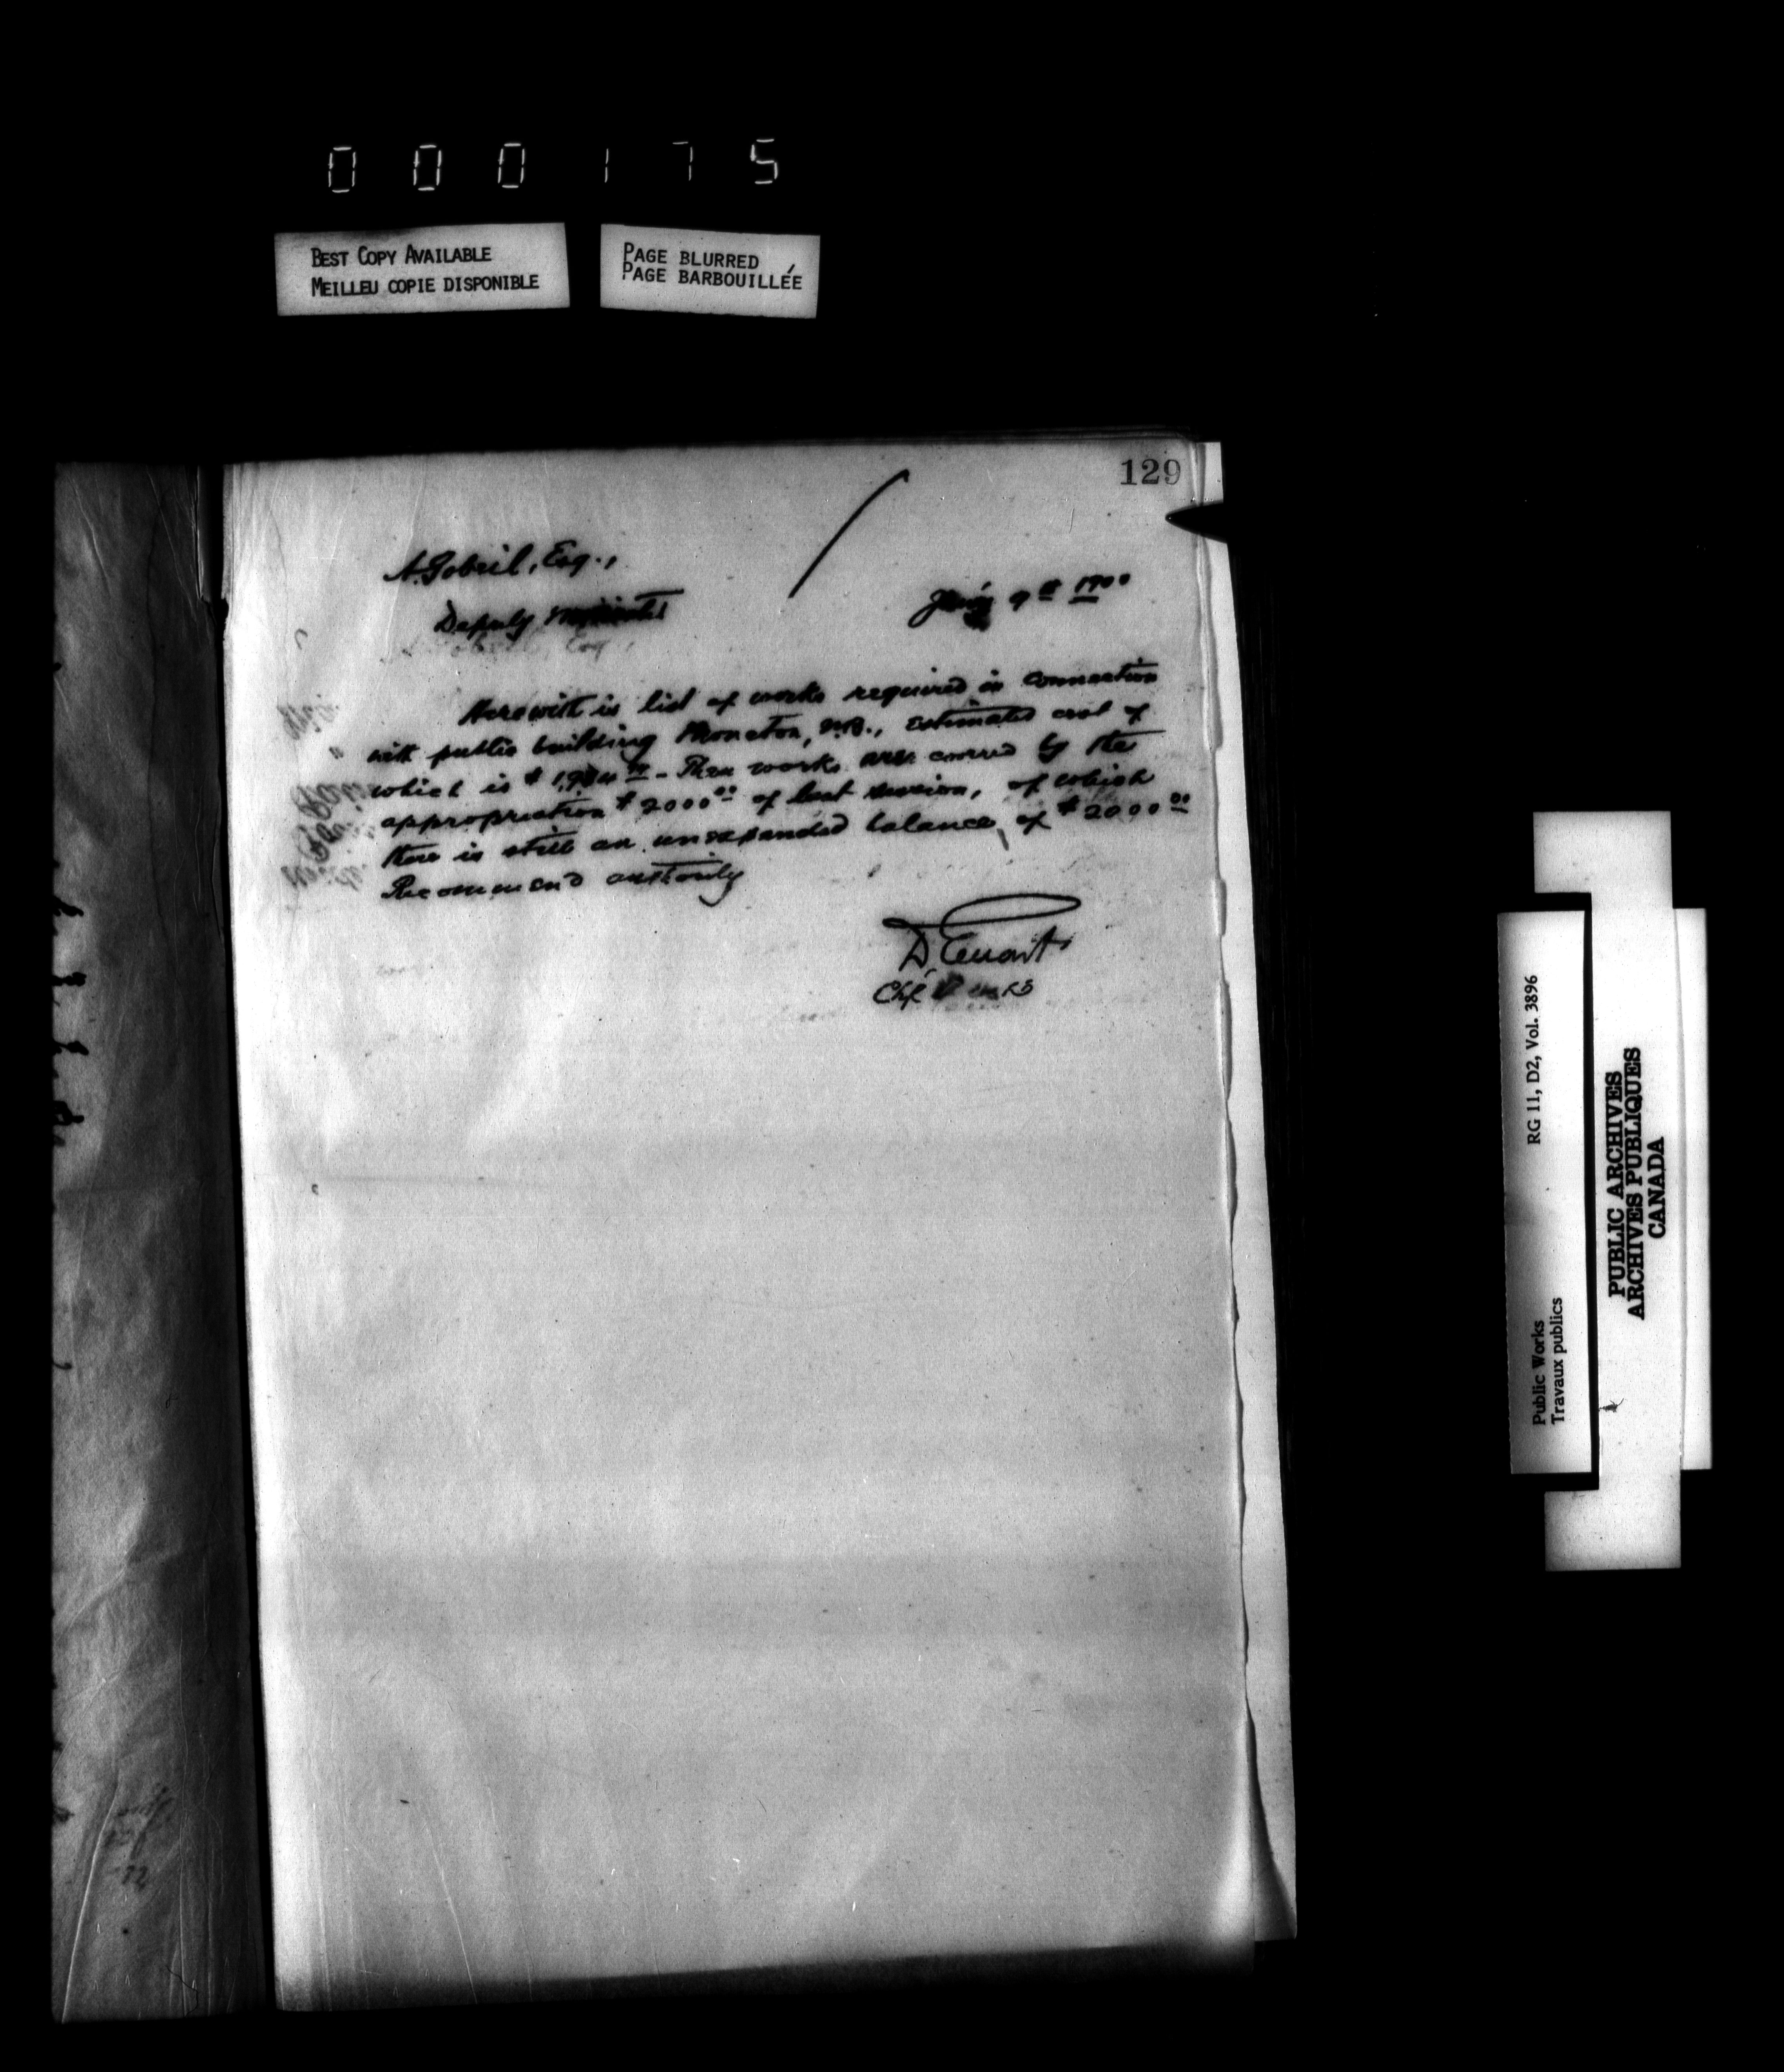 000175
BEST COPY AVAILABLE
MEILLEU COPIE DISPONIBLE
PAGE BLURRED
PAGE BARBOUILLÉE
129
A. Gobeil, Esq.,
Deputy Minister
9th 1900
Herewith is list of works required in connection
with public building Moncton, N.B., estimated cost of
which is $ - These works are covered by the
appropriation $2000.00 of last session, of which
there is still an unexpended balance of $2000.00
Recommend authority
D Ewart
Chf
RG 11, D2, Vol. 3896
Public Works
Travaux publics
PUBLIC ARCHIVES
ARCHIVES PUBLIQUES
CANADA